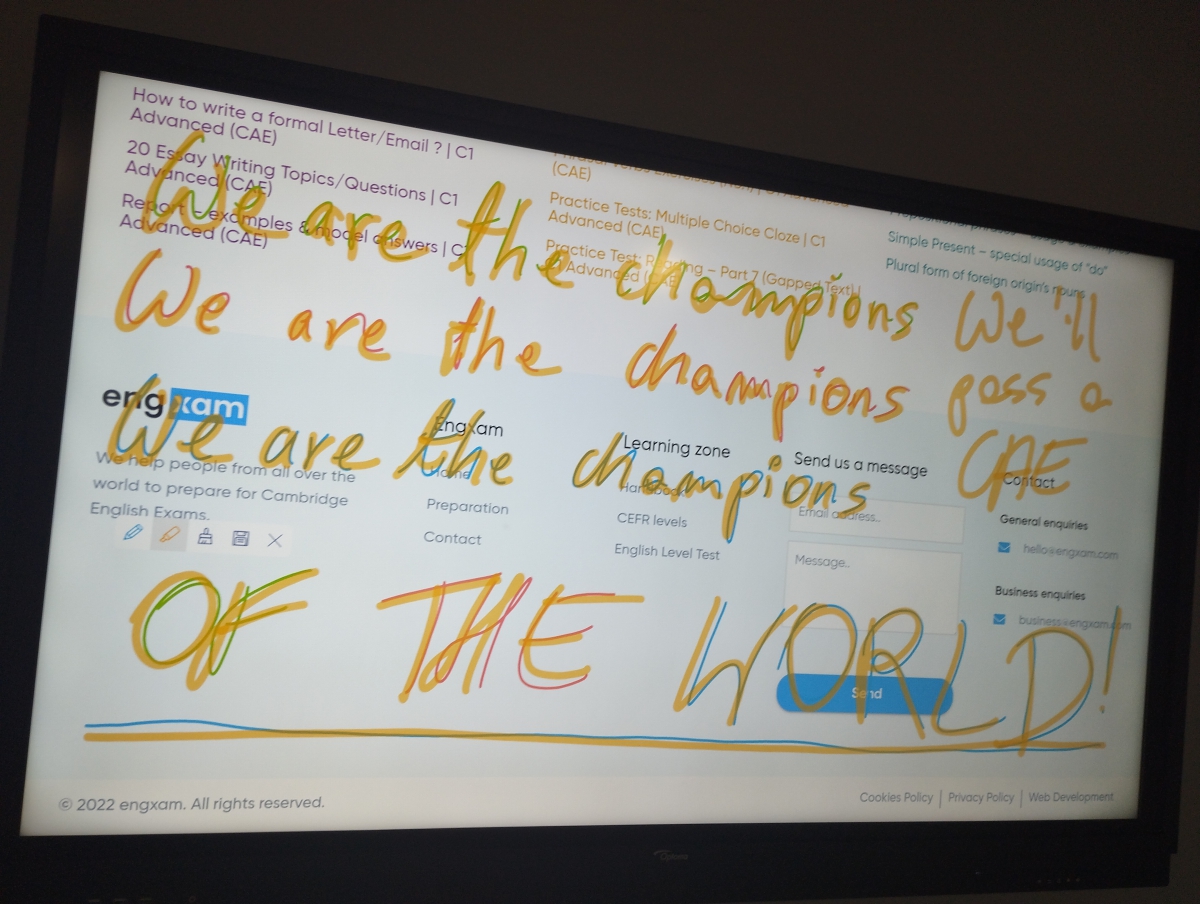 How to write a formal Letter/Email ? | C1
Advanced (CAE)
20 Essay Writing Topics/Questions | C1
Advanced (CAE)
Report – examples & model answers | C1
Advanced (CAE)
(CAE)
Practice Tests: Multiple Choice Cloze | C1
Advanced (CAE)
Practice Test: Reading – Part 7 (Gapped Text) |
Advanced (CAE)
Simple Present – special usage of "do"
Plural form of foreign origin's nouns
We are the champions We'll
We are the champions pass a
We are the champions CAE
OF THE WORLD!
engxam
We help people from all over the
world to prepare for Cambridge
English Exams.
EngXam
Home
Preparation
Contact
Learning zone
Handbook
CEFR levels
English Level Test
Send us a message
Email address..
Message..
Send
Contact
General enquiries
hello@engxam.com
Business enquiries
business@engxam.com
© 2022 engxam. All rights reserved.
Cookies Policy | Privacy Policy | Web Development
Optoma